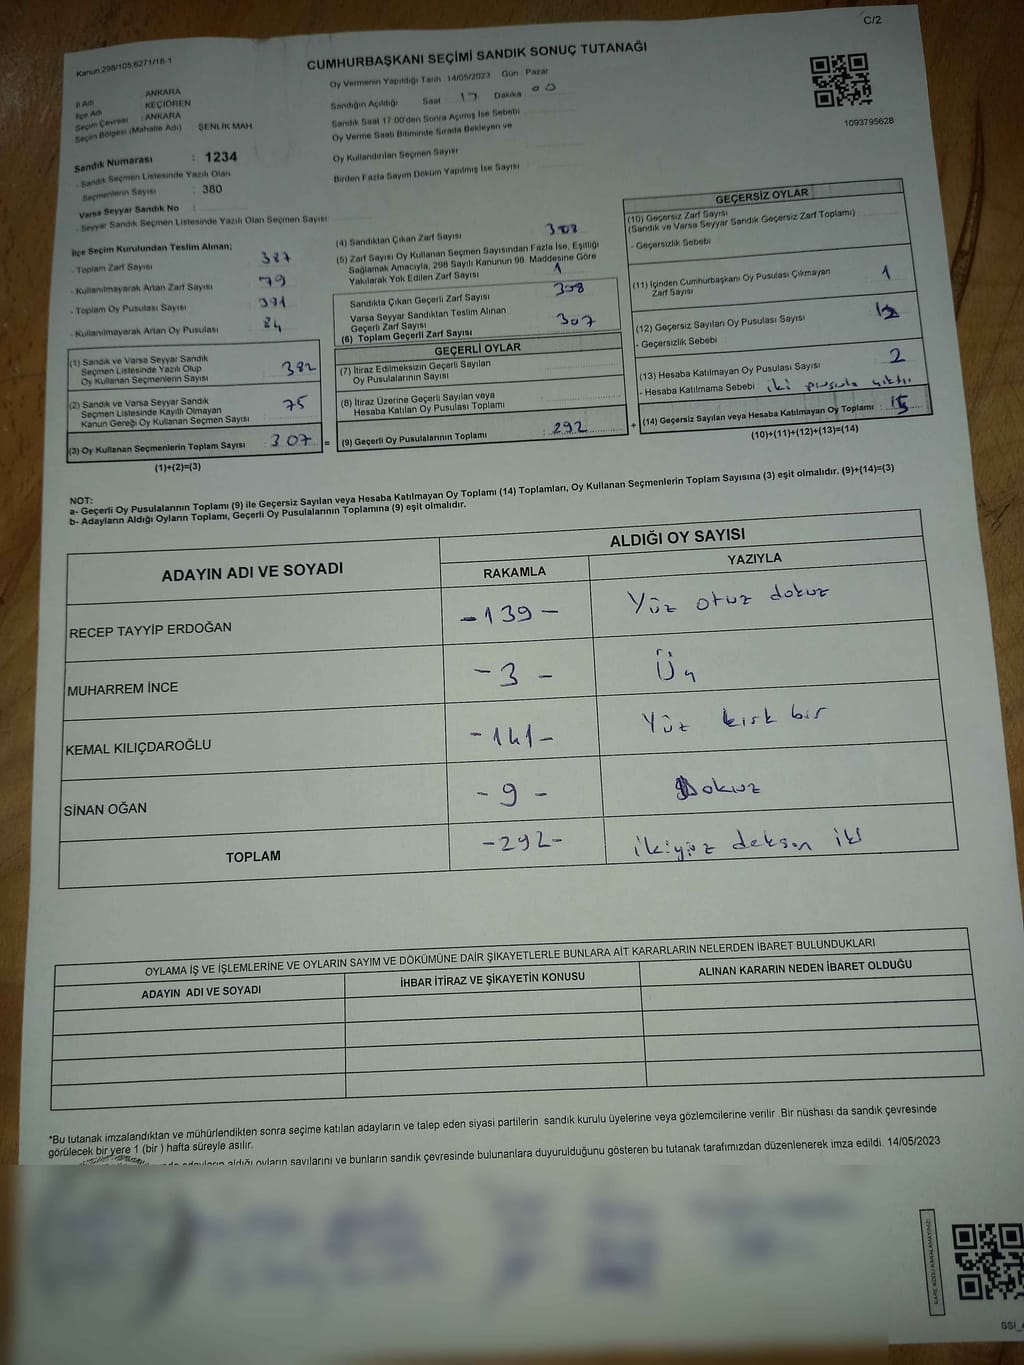 C/2
Kanun 298/105,6271/18-1
CUMHURBAŞKANI SEÇİMİ SANDIK SONUÇ TUTANAĞI
1093795628
İl Adı ANKARA
İlçe Adı KEÇİÖREN
Seçim Çevresi : ANKARA
Seçim Bölgesi (Mahalle Adı) : ŞENLİK MAH.
Sandık Numarası : 1234
- Sandık Seçmen Listesinde Yazılı Olan
Seçmenlerin Sayısı : 380
Varsa Seyyar Sandık No
- Seyyar Sandık Seçmen Listesinde Yazılı Olan Seçmen Sayısı
Oy Vermenin Yapıldığı Tarih 14/05/2023 Gün Pazar
Sandığın Açıldığı Saat 17 Dakika 00
Sandık Saat 17:00'den Sonra Açılmış İse Sebebi
Oy Verme Saati Bitiminde Sırada Bekleyen ve
Oy Kullandırılan Seçmen Sayısı
Birden Fazla Sayım Döküm Yapılmış İse Sayısı
İlçe Seçim Kurulundan Teslim Alınan;
- Toplam Zarf Sayısı 387
- Kullanılmayarak Artan Zarf Sayısı 79
- Toplam Oy Pusulası Sayısı 391
- Kullanılmayarak Artan Oy Pusulası 84
(1) Sandık ve Varsa Seyyar Sandık
Seçmen Listesinde Yazılı Olup
Oy Kullanan Seçmenlerin Sayısı
(2) Sandık ve Varsa Seyyar Sandık
Seçmen Listesinde Kayıtlı Olmayan
Kanun Gereği Oy Kullanan Seçmen Sayısı 75
(3) Oy Kullanan Seçmenlerin Toplam Sayısı : 307 =
(1)+(2)=(3)
(4) Sandıktan Çıkan Zarf Sayısı 308
(5) Zarf Sayısı Oy Kullanan Seçmen Sayısından Fazla İse, Eşitliği
Sağlamak Amacıyla, 298 Sayılı Kanunun 98. Maddesine Göre
Yakılarak Yok Edilen Zarf Sayısı 1
Sandıkta Çıkan Geçerli Zarf Sayısı 308
Varsa Seyyar Sandıktan Teslim Alınan
Geçerli Zarf Sayısı
(6) Toplam Geçerli Zarf Sayısı 307
GEÇERLİ OYLAR
(7) İtiraz Edilmeksizin Geçerli Sayılan
Oy Pusulalarının Sayısı
(8) İtiraz Üzerine Geçerli Sayılan veya
Hesaba Katılan Oy Pusulası Toplamı
(9) Geçerli Oy Pusulalarının Toplamı : 292 +
GEÇERSİZ OYLAR
(10) Geçersiz Zarf Sayısı
(Sandık ve Varsa Seyyar Sandık Geçersiz Zarf Toplamı)
- Geçersizlik Sebebi
(11) İçinden Cumhurbaşkanı Oy Pusulası Çıkmayan
Zarf Sayısı 1
(12) Geçersiz Sayılan Oy Pusulası Sayısı : 12
- Geçersizlik Sebebi
(13) Hesaba Katılmayan Oy Pusulası Sayısı 2
- Hesaba Katılmama Sebebi : iki pusula çıktı
(14) Geçersiz Sayılan veya Hesaba Katılmayan Oy Toplamı : 15
(10)+(11)+(12)+(13)=(14)
NOT:
a- Geçerli Oy Pusulalarının Toplamı (9) ile Geçersiz Sayılan veya Hesaba Katılmayan Oy Toplamı (14) Toplamları, Oy Kullanan Seçmenlerin Toplam Sayısına (3) eşit olmalıdır. (9)+(14)=(3)
b- Adayların Aldığı Oyların Toplamı, Geçerli Oy Pusulalarının Toplamına (9) eşit olmalıdır.
ADAYIN ADI VE SOYADI
ALDIĞI OY SAYISI
RAKAMLA YAZIYLA
RECEP TAYYİP ERDOĞAN -139- Yüz otuz dokuz
MUHARREM İNCE -3- Üç
KEMAL KILIÇDAROĞLU -141- Yüz kırk bir
SİNAN OĞAN -9- Dokuz
TOPLAM -292- ikiyüz doksan iki
OYLAMA İŞ VE İŞLEMLERİNE VE OYLARIN SAYIM VE DÖKÜMÜNE DAİR ŞİKAYETLERLE BUNLARA AİT KARARLARIN NELERDEN İBARET BULUNDUKLARI
ADAYIN ADI VE SOYADI İHBAR İTİRAZ VE ŞİKAYETİN KONUSU ALINAN KARARIN NEDEN İBARET OLDUĞU
*Bu tutanak imzalandıktan ve mühürlendikten sonra seçime katılan adayların ve talep eden siyasi partilerin sandık kurulu üyelerine veya gözlemcilerine verilir. Bir nüshası da sandık çevresinde
görülecek bir yere 1 (bir) hafta süreyle asılır.
adayların aldığı oyların sayılarını ve bunların sandık çevresinde bulunanlara duyurulduğunu gösteren bu tutanak tarafımızdan düzenlenerek imza edildi. 14/05/2023
KARE KODU KARALAMAYINIZ!